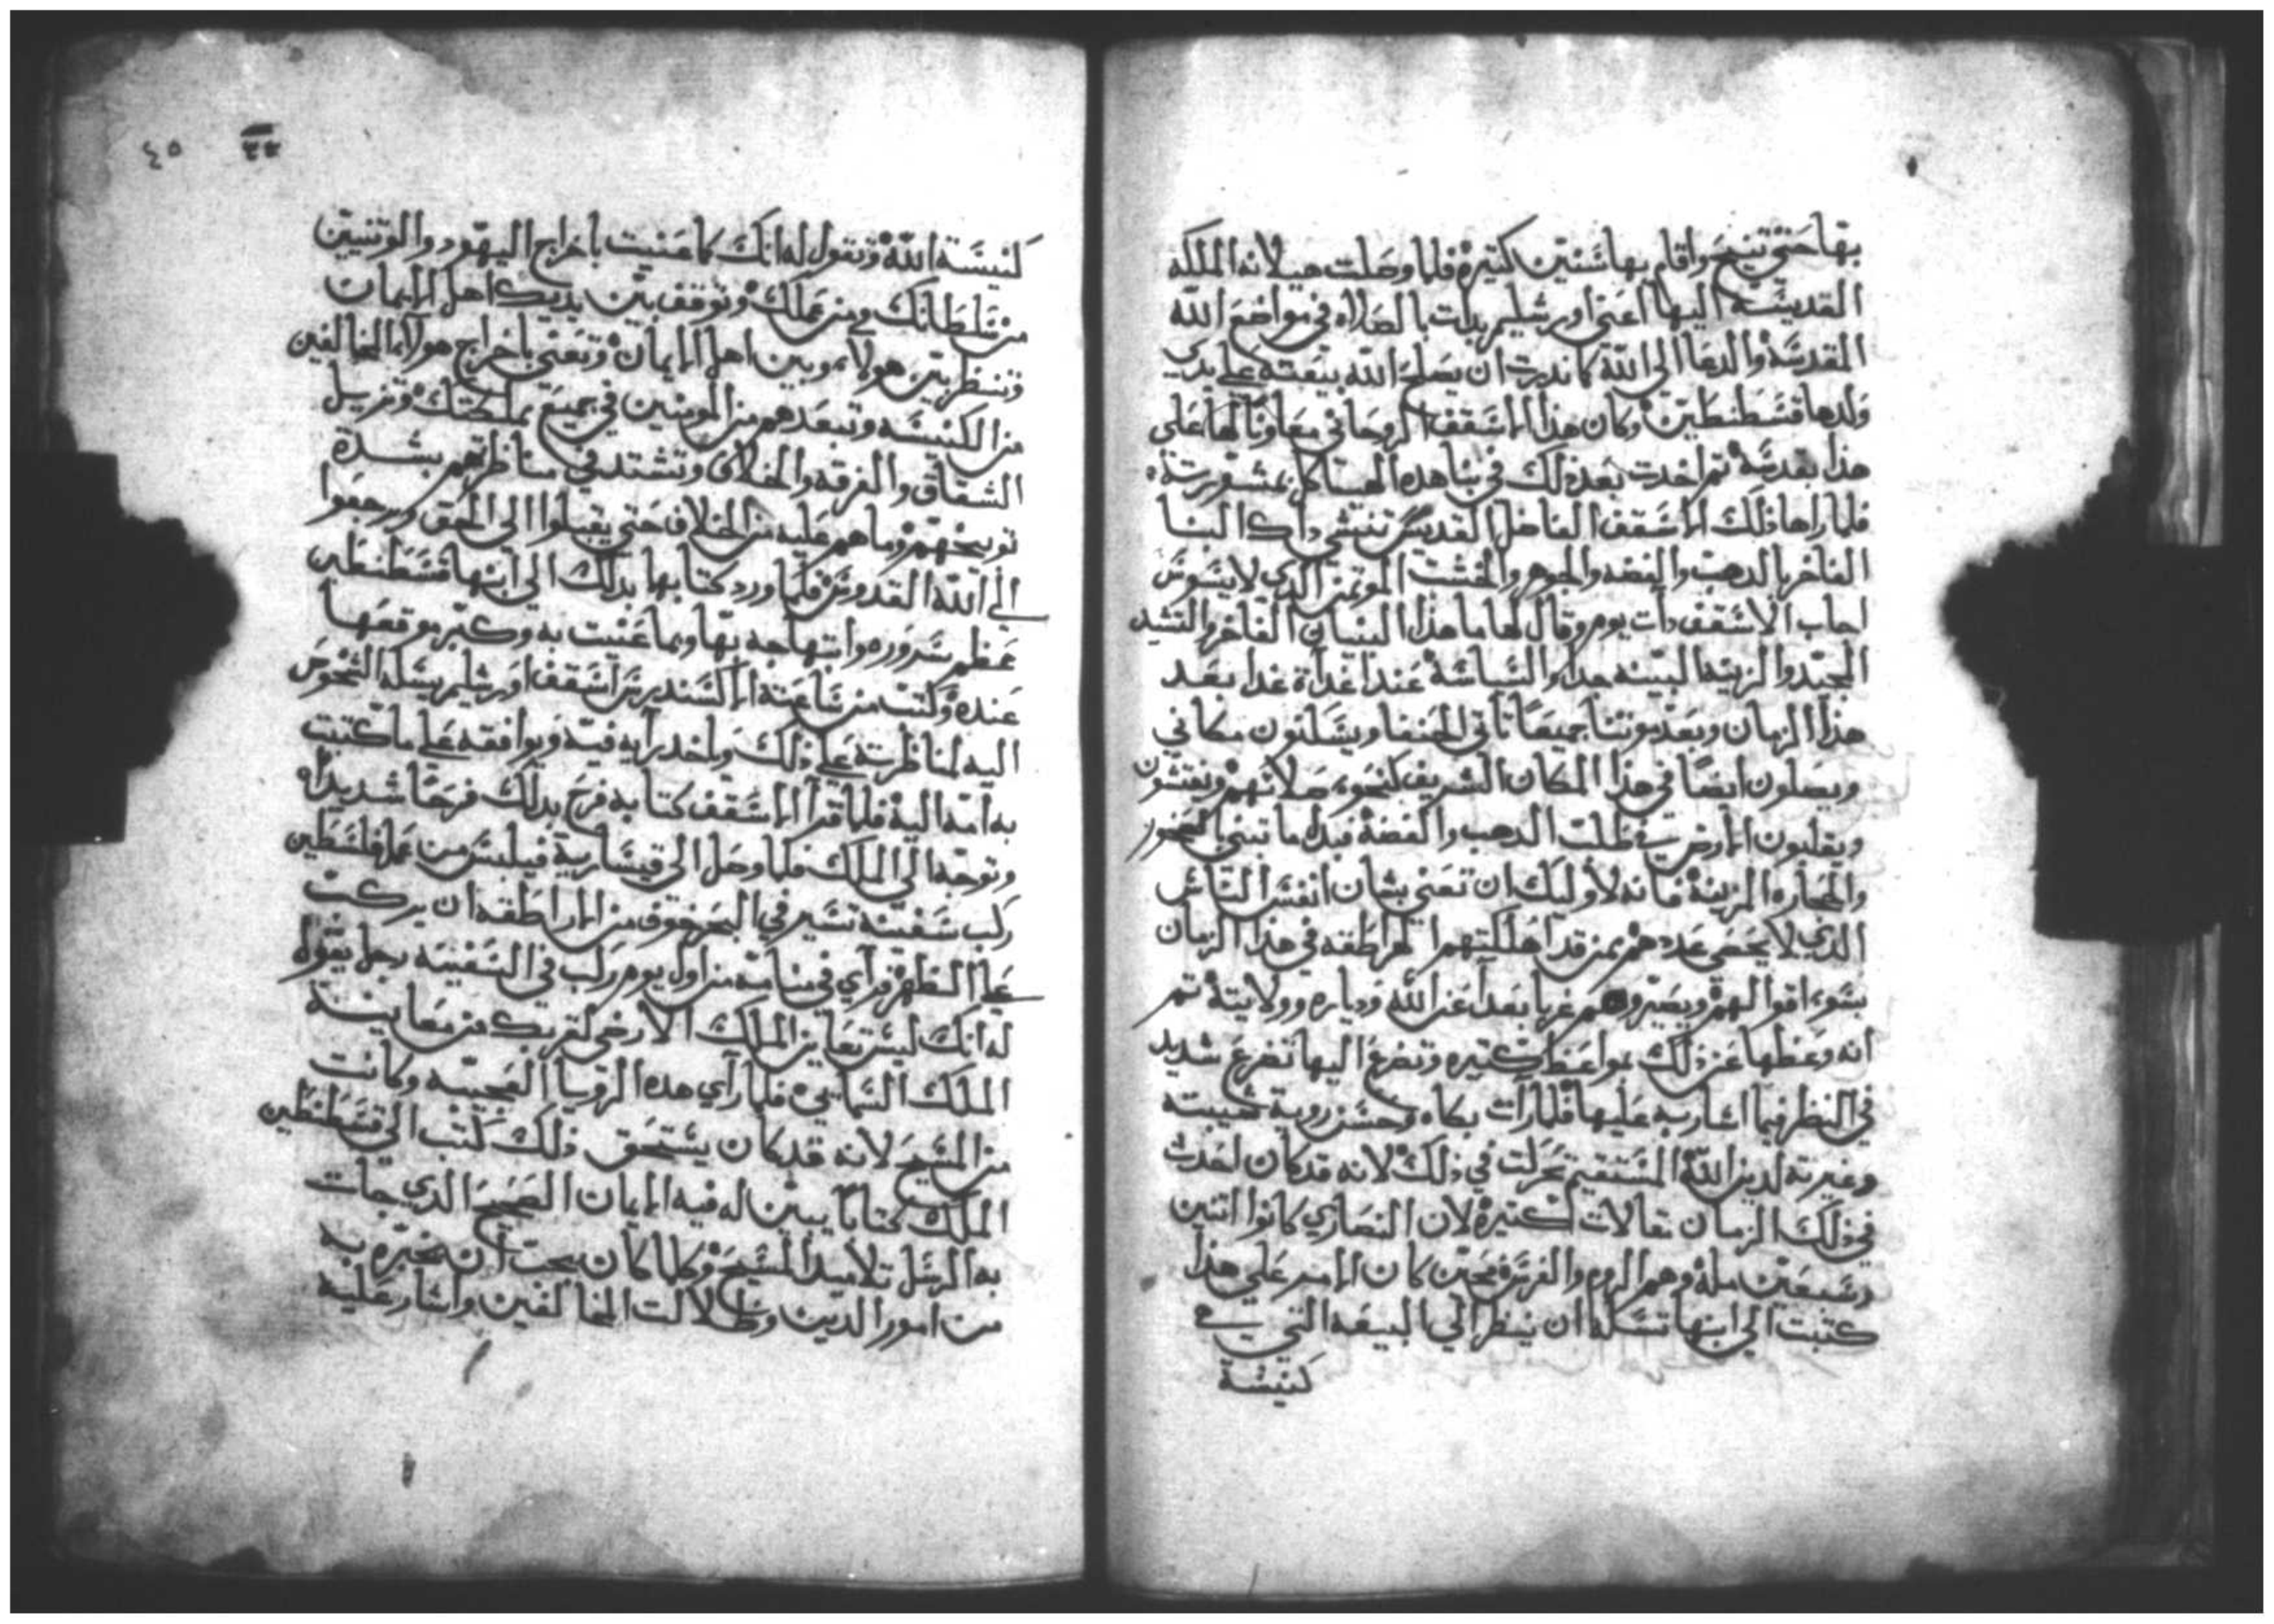 بها حتي تنيح واقام بها سنين كتيره فلما وصلت هيلانه الملكه
القديسه اليها اعني اورشليم بدات بالصلاه في مواضع الله
المقدسه والدعا الي الله كاندرت ان يصلح الله بيعته علي يدي
ولدها قسطنطين وكان هدا الاسقف الروحاني معاونا لها علي
هدا بقدسه تم اخدت بعد دلك في بنا هده الهياكل بمشورته
فلما راها ذلك الاسقف الفاضل القديس تنتشي داك البنا
الفاخر بالدهب والفضه والجوهر والخشب الموتمن الدي لا يسوس
اجاب الاسقف دات يوم وقال لها ما هدا البنيان الفاخر والتشيد
الجيد والزينه البينه جدا عندا غداة غدا بعد
هدا الزمان وبعد موتنا جميعا تاتي الحنفا ويسلنون مكاني
ويصلون ايضا في هدا المكان الشريف كنحو صلاتهم ويفتشون
ويقلبون الارض في طلب الدهب والفضه فبدل ما تبني بالصخور
والحجاره المزينه فانه لاوليك ان تعني بشان انفس الناس
الدي لا يحصي عددهم ممن قد اهلكتهم الهراطقه في هدا الزمان
بسوء اقوالهم ويصيروهم غربا بعدا عن الله ودياره وولايته تم
انه وعظها عن ذلك بمواعظ كتيره وتضرع اليها تضرع شديد
في النظر فيما اشار به عليها فلما رات بكاه وحسن روية شيبته
وغيرته لدين الله المستقيم تحركت في ذلك لانه قد كان احدث
في ذلك الزمان مقالات كتيره لان النصاري كانوا اتنين
وسبعين مله وهم الروم والفرنج فحين كان الامر علي هدا
كتبت الي ابنها تسله ان ينظر الي البيعه التي هي
كنيسة
٣٣ ٤٥
كنيسة الله وتقول له انك كما عنيت باخراج اليهود والوتنيين
من سلطانك ومن عملك وتوقف بين يديك اهل الايمان
وتنظر بين هولاء وبين اهل الايمان وتعني باخراج هولاء المخالفين
من الكنيسه وتبعدهم من المومنين في جميع مملكتك وتزيل
الشقاق والفرقه والخلاف وتشتد في مناظرتهم بشدة
توبيخهم وما هم عليه من الخلاف حتي يقبلوا الي الحق ويرجعوا
الي الله القدوس فلما ورد كتابها بدلك الي ابنها قسطنطين
عظم سروره وابتهاجه بها وبما عنيت به وكبر موقعها
عنده وكتب من ساعته الاكسندرس اسقف اورشليم يسله الشخوص
اليه لمناظرته علي ذلك وياخد رايه فيه ويوافقه علي ما كتبت
به امه اليه فلما قرا الاسقف كتابه فرح بدلك فرحا شديدا
وتوجه الي الملك فلما وصل الي قيسارية فيلبس من عمل فلسطين
ركب سفينه تسير في البحر خوف من الاراطقه ان يركب
علي الظهر فراي في منامه من اول يوم ركب في السفينه رجل يقول
له انك ليس تعاين الملك الارضي لقربك من معاينة
الملك السمايي فلما راي هده الرويا العجيبه وكانت
من المسيح لانه قد كان يستحق ذلك كتب الي قسطنطين
الملك كتابا يبين له فيه الايمان الصحيح الدي جات
به الرسل تلاميد المسيح وكلما كان يجب ان يخبره به
من امور الدين وضلالت المخالفين واشار عليه